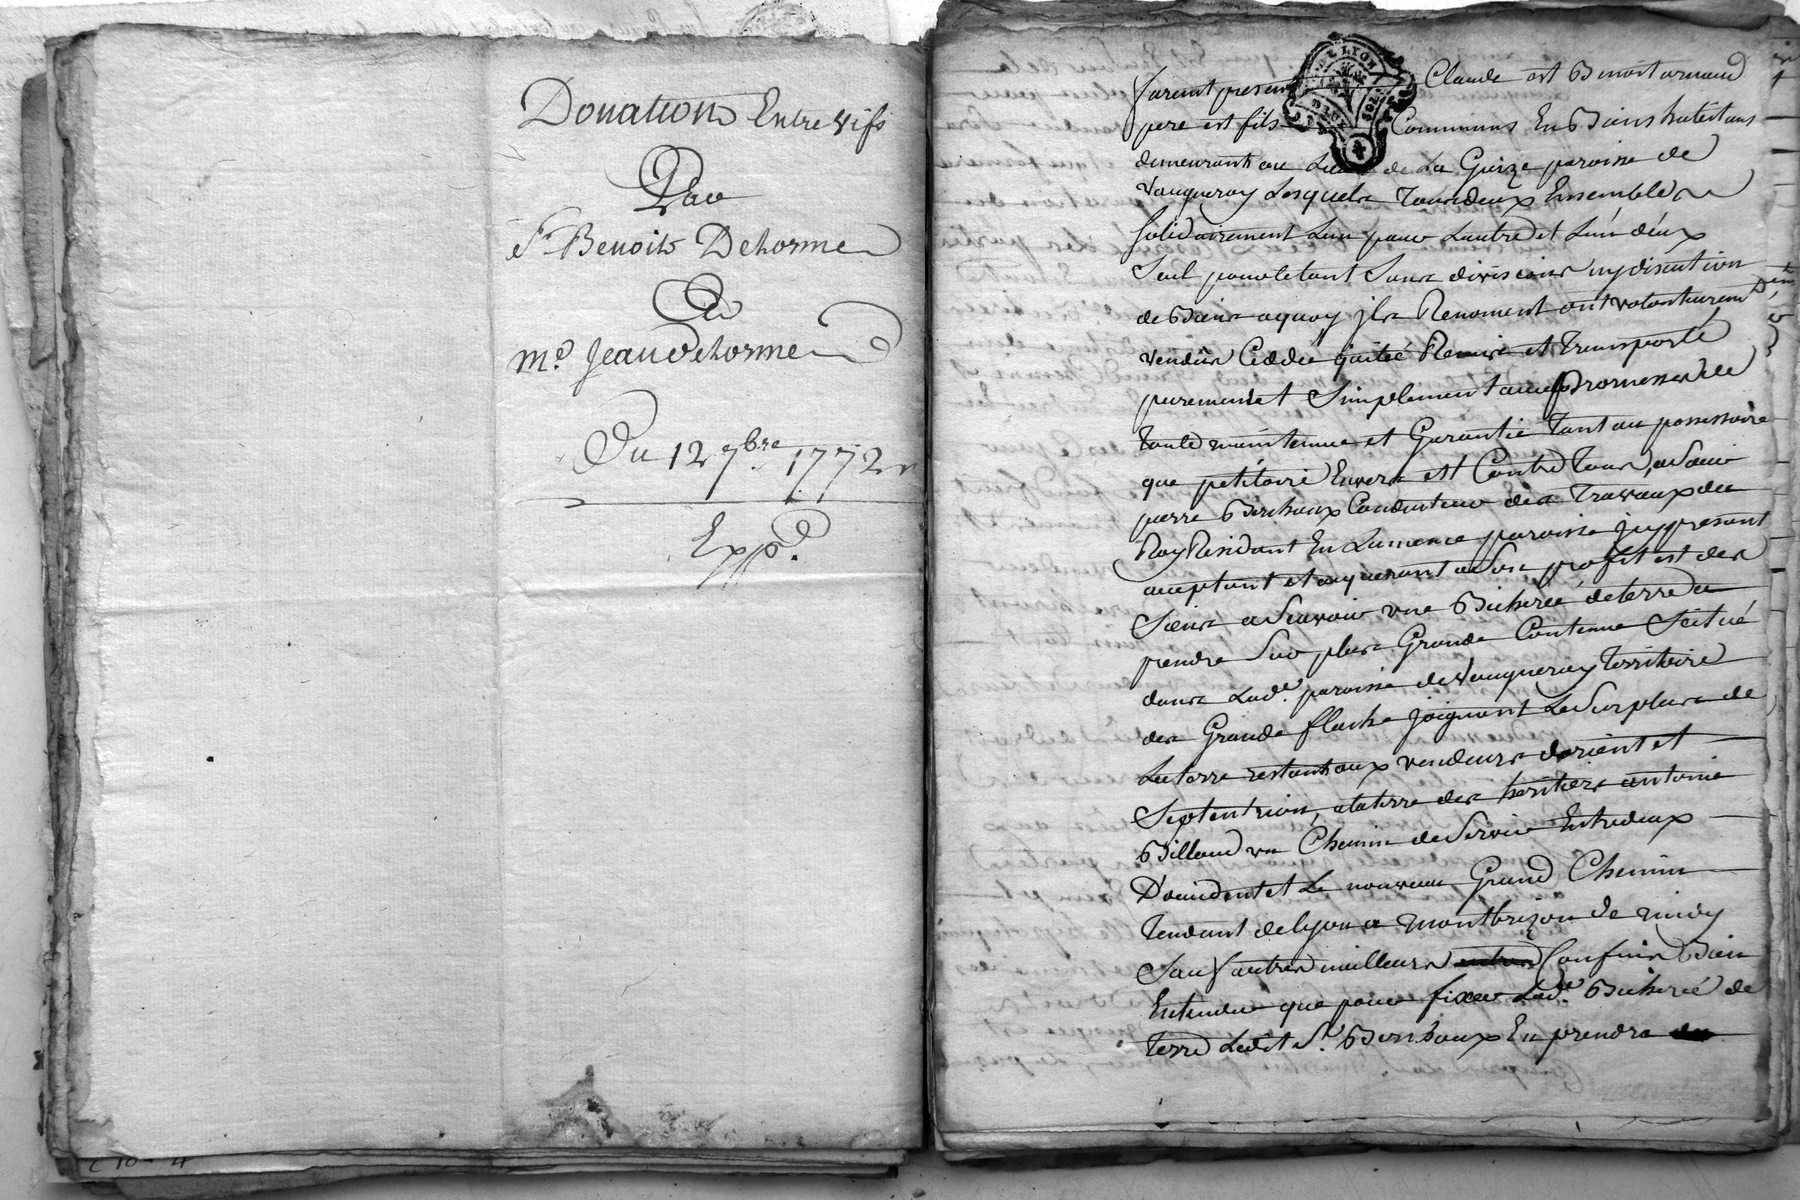 Donation Entre vifs
Par
Sr. Benoit Delorme
A
Me. Jean Delorme
Du 12 7bre 1772
Expd.
furent present Claude et Benoit
pere et fils Communs En Biens habitans
demeurants au Lieu de La Guize paroisse de
Vaugneray Lesquels Tous deux Ensemble
Solidairement Lun pour Lautre et Lun deux
Seul pour le tout Sans division ny discution
de Biens a quoy ils Renoncent ont volontairemt
vendus Cedde quitté Remis et Transporté
purement et Simplement avec Promesse de
Toute maintenue et Garantie Tant au possessoire
que petitoire Envers et Contre Tous, a Sieur
pierre Conducteur des Travaux du
Roy Residant En Lumence paroisse jcy present
acceptant et acquerant a Son profit et des
Siens a Scavoir une Bicherée de terre a
prendre Sur plus Grande Contenue Scitué
dans Lade. paroisse de Vaugneray Territoire
des Grande flache joignant Le Surplus de
La terre restant aux vendeurs dorient et
Septentrion, a la terre des heritiers antoine
Billaud un Chemin de Service Entredeux
Doccident et Le nouveau Grand Chemin
Tendant de lyon a montbrizon de midy
Sauf autres meilleurs Confins Bien
Entendu que pour fixer Lade. Bicherée de
Terre Ledit Sr. En prendra